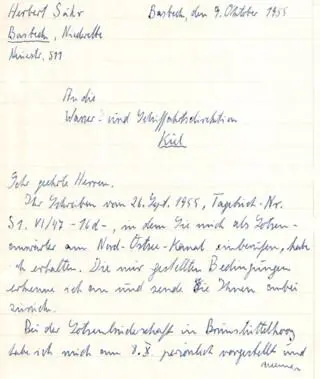 Herbert Sühr
Basbeck, den 9. Oktober 1955
Basbeck, Niederelbe
Neuestr. 511
An die
Wasser- und Schiffahrtsdirektion
Kiel
Sehr geehrte Herren.
Ihr Schreiben vom 26. Sept. 1955, Tagebuch-Nr.
S1. VI/47 - 16d -, in dem Sie mich als Lotsen-
anwärter am Nord-Ostsee-Kanal einberufen, habe
ich erhalten. Die mir gestellten Bedingungen
erkenne ich an und sende Sie Ihnen anbei
zurück.
Bei der Lotsenbrüderschaft in Brunsbüttelkoog
habe ich mich am 8.X. persönlich vorgestellt und
meinen